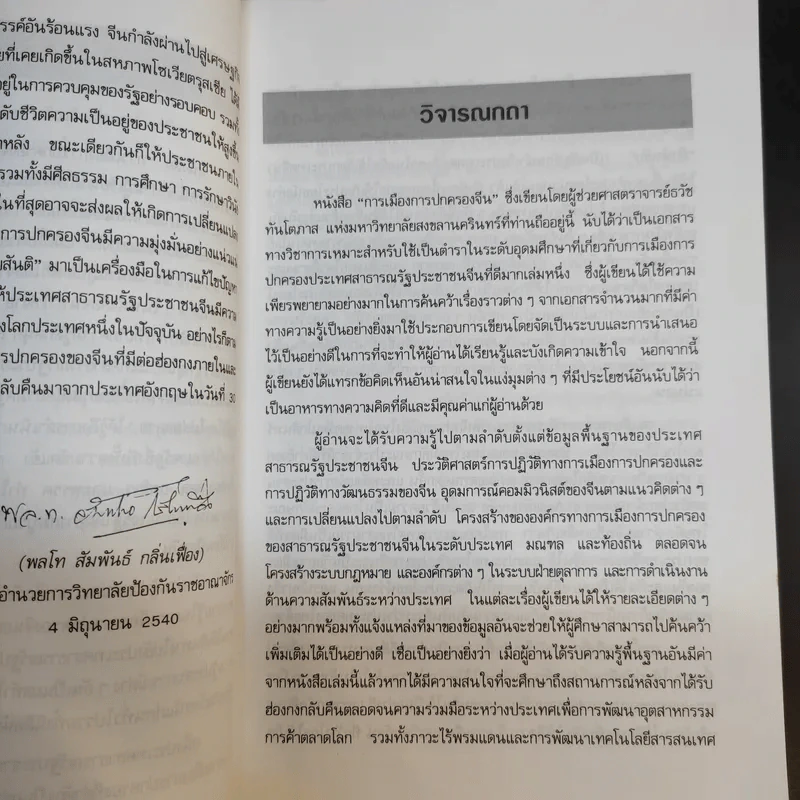 รรค์อันร้อนแรง จีนกำลังผ่านไปสู่เศรษฐกิจ
ที่เคยเกิดขึ้นในสหภาพโซเวียตรุสเซีย
อยู่ในการควบคุมของรัฐอย่างรอบคอบ รวมทั้ง
ดับชีวิตความเป็นอยู่ของประชาชนให้สูงขึ้น
หลัง ขณะเดียวกันก็ให้ประชาชนภายใน
รวมทั้งมีศีลธรรม การศึกษา การรักษาวินัย
ในที่สุดอาจจะส่งผลให้เกิดการเปลี่ยนแปลง
การปกครองจีนมีความมุ่งมั่นอย่างแน่วแน่
สันติ” มาเป็นเครื่องมือในการแก้ไขปัญหา
ห้ประเทศสาธารณรัฐประชาชนจีนมีความ
งโลกประเทศหนึ่งในปัจจุบัน อย่างไรก็ตาม
รปกครองของจีนที่มีต่อฮ่องกงภายในและ
ลับคืนมาจากประเทศอังกฤษในวันที่ 30
พล.ท.
(พลโท สัมพันธ์ กลิ่นเฟื่อง)
อำนวยการวิทยาลัยป้องกันราชอาณาจักร
4 มิถุนายน 2540
วิจารณกถา
หนังสือ “การเมืองการปกครองจีน” ซึ่งเขียนโดยผู้ช่วยศาสตราจารย์ธวัช
ทันโตภาส แห่งมหาวิทยาลัยสงขลานครินทร์ที่ท่านถืออยู่นี้ นับได้ว่าเป็นเอกสาร
ทางวิชาการเหมาะสำหรับใช้เป็นตำราในระดับอุดมศึกษาที่เกี่ยวกับการเมืองการ
ปกครองประเทศสาธารณรัฐประชาชนจีนที่ดีมากเล่มหนึ่ง ซึ่งผู้เขียนได้ใช้ความ
เพียรพยายามอย่างมากในการค้นคว้าเรื่องราวต่าง ๆ จากเอกสารจำนวนมากที่มีค่า
ทางความรู้เป็นอย่างยิ่งมาใช้ประกอบการเขียนโดยจัดเป็นระบบและการนำเสนอ
ไว้เป็นอย่างดีในการที่จะทำให้ผู้อ่านได้เรียนรู้และบังเกิดความเข้าใจ นอกจากนี้
ผู้เขียนยังได้แทรกข้อคิดเห็นอันน่าสนใจในแง่มุมต่าง ๆ ที่มีประโยชน์อันนับได้ว่า
เป็นอาหารทางความคิดที่ดีและมีคุณค่าแก่ผู้อ่านด้วย
ผู้อ่านจะได้รับความรู้ไปตามลำดับตั้งแต่ข้อมูลพื้นฐานของประเทศ
สาธารณรัฐประชาชนจีน ประวัติศาสตร์การปฏิวัติทางการเมืองการปกครองและ
การปฏิวัติทางวัฒนธรรมของจีน อุดมการณ์คอมมิวนิสต์ของจีนตามแนวคิดต่าง ๆ
และการเปลี่ยนแปลงไปตามลำดับ โครงสร้างขององค์กรทางการเมืองการปกครอง
ของสาธารณรัฐประชาชนจีนในระดับประเทศ มณฑล และท้องถิ่น ตลอดจน
โครงสร้างระบบกฎหมาย และองค์กรต่าง ๆ ในระบบฝ่ายตุลาการ และการดำเนินงาน
ด้านความสัมพันธ์ระหว่างประเทศ ในแต่ละเรื่องผู้เขียนได้ให้รายละเอียดต่าง ๆ
อย่างมากพร้อมทั้งแจ้งแหล่งที่มาของข้อมูลอันจะช่วยให้ผู้ศึกษาสามารถไปค้นคว้า
เพิ่มเติมได้เป็นอย่างดี เชื่อเป็นอย่างยิ่งว่า เมื่อผู้อ่านได้รับความรู้พื้นฐานอันมีค่า
จากหนังสือเล่มนี้แล้วหากได้มีความสนใจที่จะศึกษาถึงสถานการณ์หลังจากได้รับ
ฮ่องกงกลับคืนตลอดจนความร่วมมือระหว่างประเทศเพื่อการพัฒนาอุตสาหกรรม
การค้าตลาดโลก รวมทั้งภาวะไร้พรมแดนและการพัฒนาเทคโนโลยีสารสนเทศ